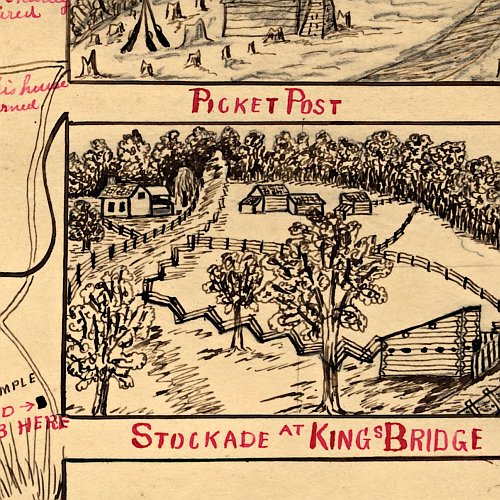 ired
is house
PICKET POST
MPLE
D →
B HERE
STOCKADE AT KING'S BRIDGE